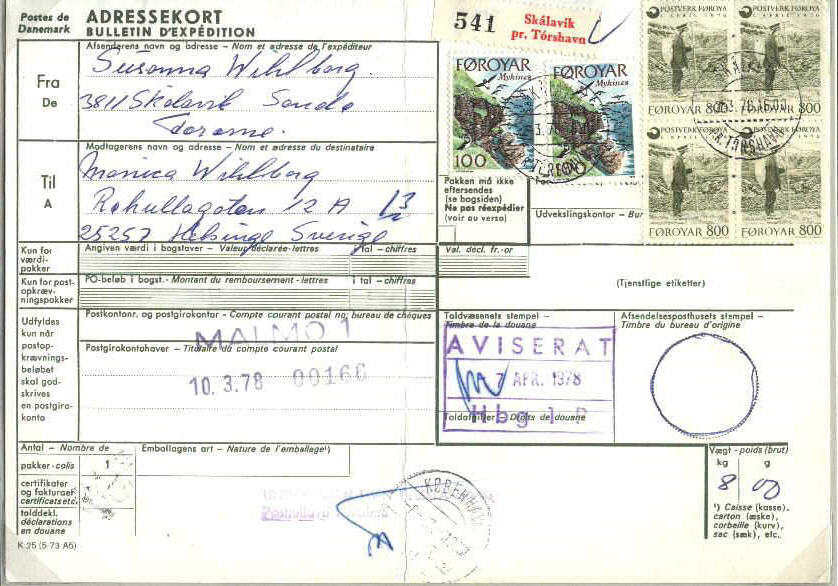 Postes de Danemark
ADRESSEKORT
BULLETIN D'EXPÉDITION
541
Skálavik
pr. Tórshavn
Afsenderens navn og adresse – Nom et adresse de l'expéditeur
Fra
De
Susanna Wihlborg.
3811 Skálavik Sando
Modtagerens navn og adresse – Nom et adresse du destinataire
Til
A
Monica Wihlborg
12 A
25257 Helsinge Sverige
FØROYAR
Mykines
100
FØROYAR
Mykines
POSTVERK FØROYA
1. APRIL 1976
FØROYAR 800
POSTVERK FØROYA
1. APRIL 1976
FØROYAR 800
POSTVERK FØROYA
FØROYAR 800
POSTVERK FØROYA
FØROYAR 800
PR. TÓRSHAVN
Pakken må ikke
eftersendes
(se bagsiden)
Ne pas réexpédier
(voir au verso)
For
Udvekslingskontor – Bur
Kun for
værdi-
pakker
Angiven værdi i bogstaver – Valeur déclarée-lettres
I tal – chiffres
Val. décl. fr.-or
Kun for post-
opkræv-
ningspakker
PO-beløb i bogst. - Montant du remboursement - lettres
I tal – chiffres
(Tjenstlige etiketter)
Udfyldes
kun når
postop-
krævnings-
beløbet
skal god-
skrives
en postgiro-
konto
Postkontonr. og postgirokontor – Compte courant postal no; bureau de chèques
MALMÖ 1
Postgirokontohaver – Titulaire du compte courant postal
10. 3. 78 00166
Toldvæsenets stempel –
Timbre de la douane
AVISERAT
7 APR. 1978
Hbg 1 P
Toldafgifter – Droits de douane
Afsendelsesposthusets stempel –
Timbre du bureau d'origine
Antal – Nombre de
pakker - colis
1
certifikater
og fakturaer
certificats etc.
tolddekl.
déclarations
en douane
Emballagens art – Nature de l'emballage¹)
KØBENHAVN
Vægt - poids (brut)
kg g
8 00
¹) Caisse (kasse),
carton (æske),
corbeille (kurv),
sac (sæk), etc.
K 25 (5-73 A5)